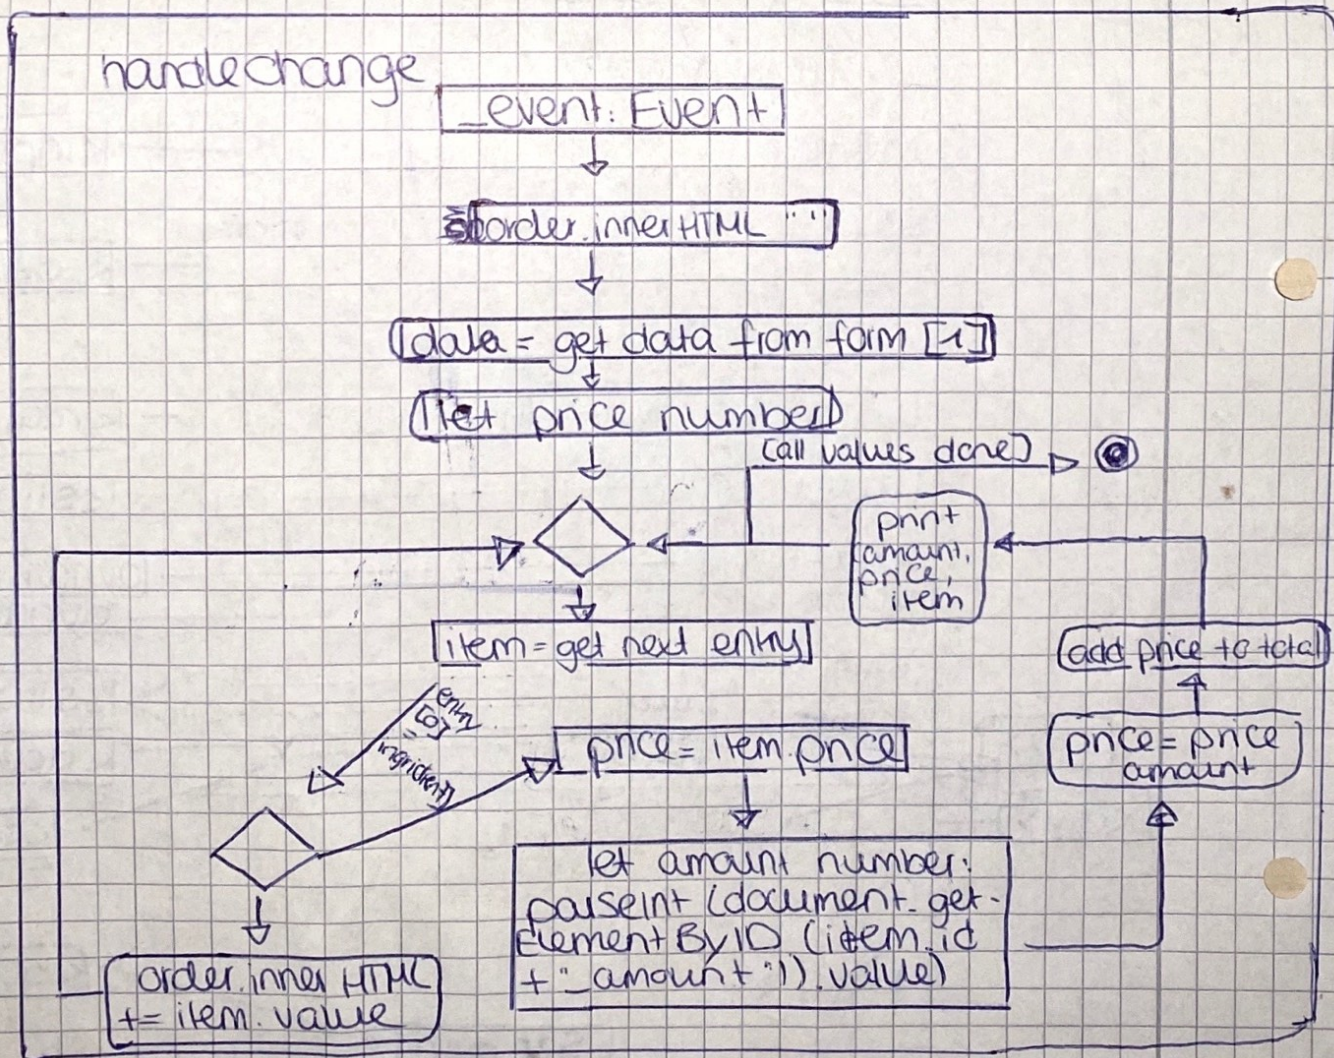 handlechange
_event: Event
order.innerHTML " "
data = get data from form [1]
let price number
[all values done]
print
amount,
price,
item
item = get next entry
add price to total
entry
[0]
price = item.price
price = price
amount
let amount number:
parseInt (document. get-
Element By ID (item.id
+ "_amount")).value)
order.inner HTML
+= item. value